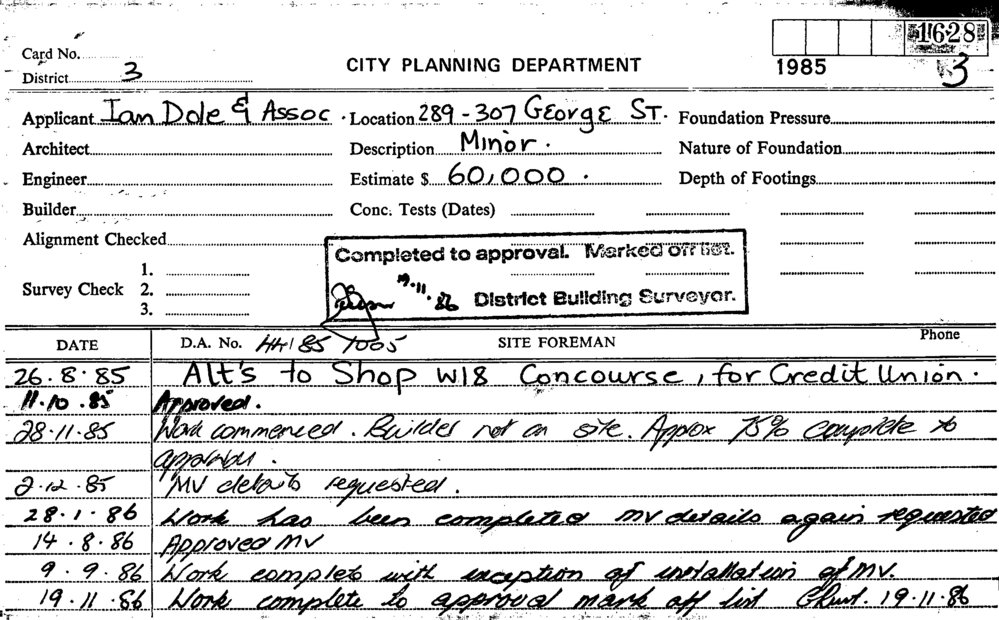 1628
Card No.
1985
3
District 3
CITY PLANNING DEPARTMENT
Applicant Ian Dole & Assoc. Location 289-307 George St. Foundation Pressure
Architect Description Minor. Nature of Foundation
Engineer Estimate $ 60,000. Depth of Footings
Builder Conc. Tests (Dates)
Alignment Checked
Completed to approval. Marked off list.
19.11.86 District Building Surveyor.
Survey Check 1.
2.
3.
DATE D.A. No. HH 85 1005 SITE FOREMAN Phone
26.8.85 Alt's to Shop W18 Concourse, for Credit Union.
11.10.85 Approved.
28.11.85 Work commenced. Builder not on site. Approx 75% complete to
approval.
2.12.85 MV details requested.
28.1.86 Work has been completed MV details again requested
14.8.86 Approved MV
9.9.86 Work complete with exception of installation of MV.
19.11.86 Work complete to approval mark off list 19.11.86